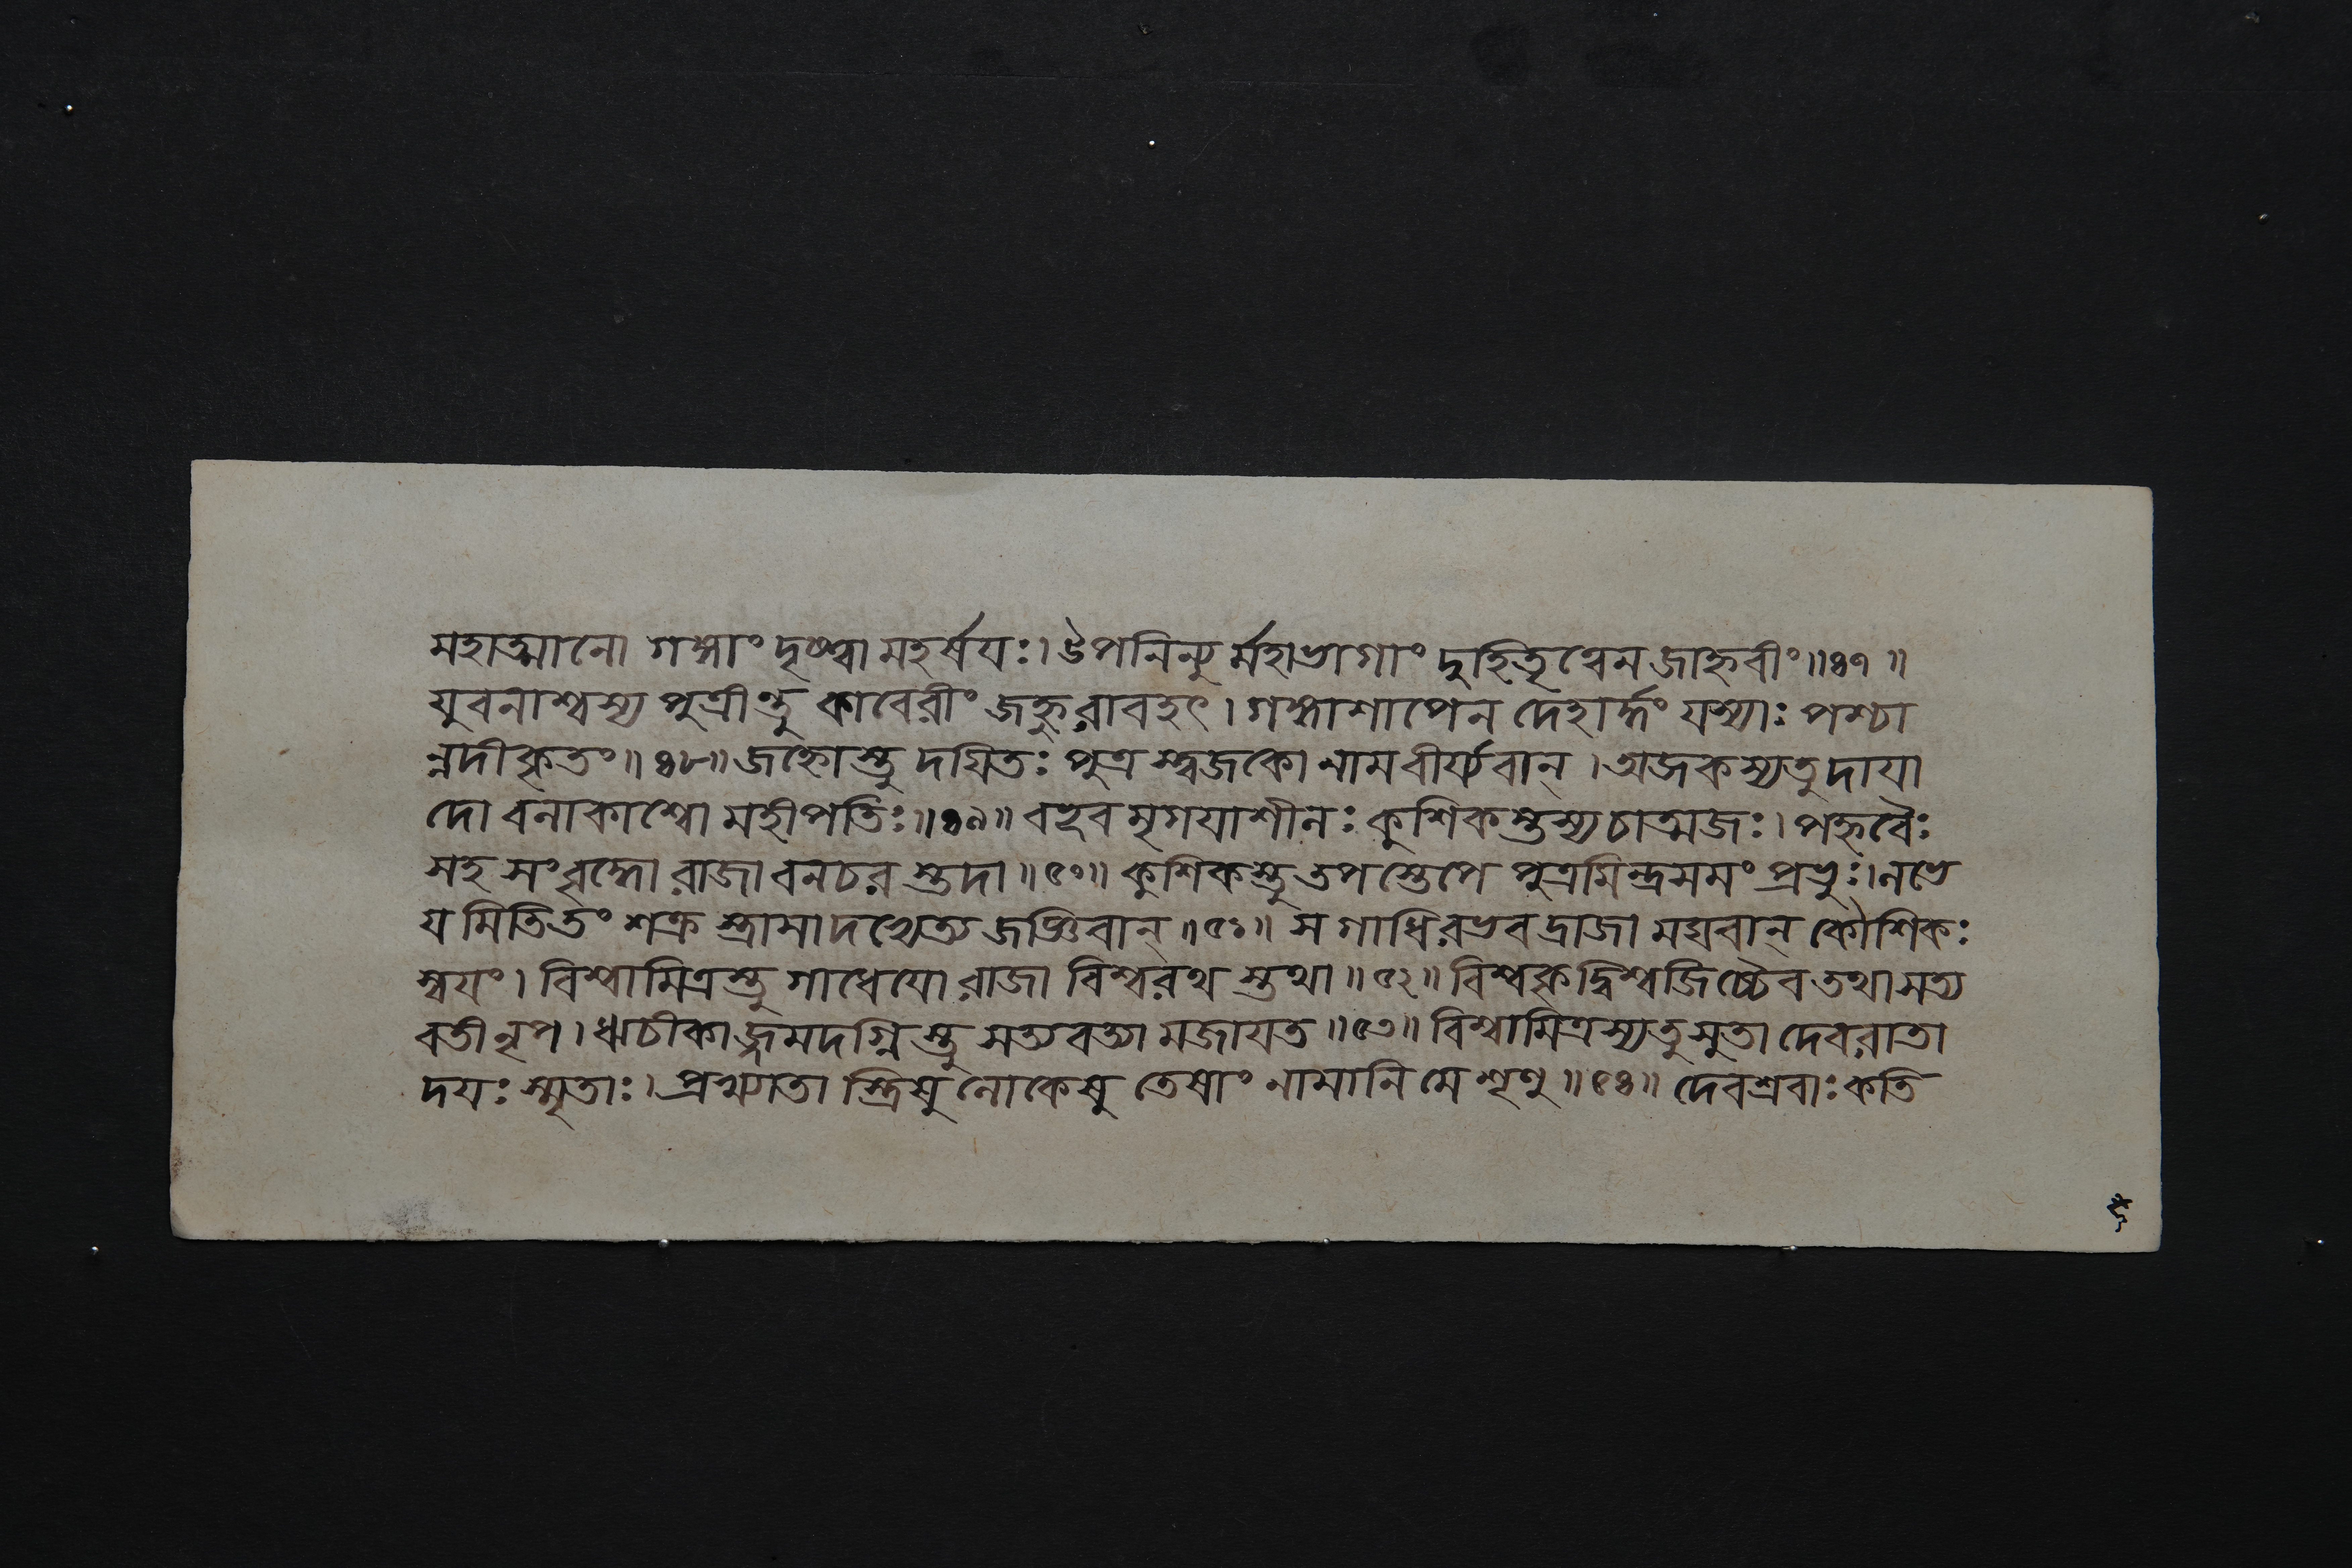 মহাত্মানো গঙ্গাং দৃষ্ট্বা মহর্ষয়ঃ। উপনিন্যুর্মহাভাগাং দুহিতৃত্বেন জাহ্নবীং॥৪৭॥
যুবনাশ্বস্য পুত্রীন্তু কাবেরীং জহ্নুরাবহৎ। গঙ্গাশাপেন দেহার্দ্ধং যস্যাঃ পশ্চা
ন্নদীকৃতং॥৪৮॥ জহ্নোস্তু দয়িতঃ পুত্রস্ত্বজকো নাম বীর্য্যবান্। অজকস্য তু দায়া
দো বলাকাশ্বো মহীপতিঃ॥৪৯॥ বহূব মৃগয়াশীলঃ কুশিকস্তস্য চাত্মজঃ। পহ্নবৈঃ
সহ সংবৃদ্ধো রাজা বনচরস্তদা॥৫০॥ কুশিকস্তু তপস্তেপে পুত্রমিন্দ্রসমং প্রভুঃ। লভে
য়মিতি তং শক্রস্ত্রাসাদভ্যেত্য জজ্ঞিবান্॥৫১॥ স গাধিরভবদ্রাজা মঘবান্ কৌশিকঃ
স্বয়ং। বিশ্বামিত্রস্তু গাধেয়ো রাজা বিশ্বরথস্তথা॥৫২॥ বিশ্বকৃদ্বিশ্বজিচ্চৈব তথা সত্য
বতী নৃপ। ঋচীকাজ্জমদগ্নিস্তু সত্যবত্যামজায়ত॥৫৩॥ বিশ্বামিত্রস্য তু সুতা দেবরাতা
দয়ঃ স্মৃতাঃ। প্রখ্যাতাস্ত্রিষু লোকেষু তেষাং নামানি মে শৃণু॥৫৪॥ দেবশ্রবাঃ কতি